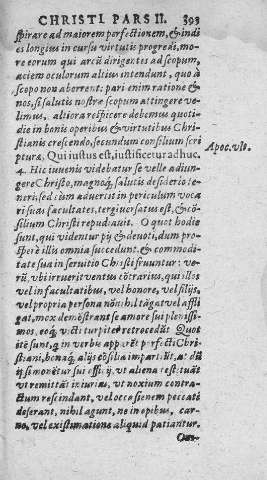 CHRISTI PARS II. 393
spirare ad maiorem perfectionem, & indi
es longius in cursu virtutis progredi, mo-
re eorum qui arcū dirigentes ad scopum,
aciem oculorum altius intendunt, quo à
scopo non aberrent: pari enim ratione &
nos, si salutis nostræ scopum attingere ve-
limus, altiora respicere debemus quoti-
die in bonis operibus & virtutibus Chri-
stianis crescendo, secundum consilium scri
pturæ, Qui iustus est, iustificetur adhuc.
Apoc. vlt.
4. Hic iuuenis videbatur se velle adiun-
gere Christo, magnoq́; salutis desiderio te-
neri, sed cùm aduertit in periculum voca
ri suas facultates, tergiuersatus est, & cō-
silium Christi repudiauit. O quot hodie
sunt, qui videntur pij & deuoti, dum pro-
sperè illis omnia succedunt, & commodi-
tate sua in seruitio Christi fruuntur: ve-
rū, vbi irruerit ventus cōtrarius, qui illos
vel in facultatibus, vel honore, vel filijs,
vel propria persona nōnihil tāgat vel affli
gat, mox demōstrant se amore sui plenissi-
mos, eoq́; vecti turpiter retrocedūt. Quot
ite sunt, q in verbis apparēt perfecti Chri
stiani, benaq́; alijs cōsilia impartiūt, at dū
ipsi monētur sui officij, vt aliena restituāt
vt remittāt iniurias, vt noxium contra-
ctum rescindant, vel occasionem peccati
deserant, nihil agunt, ne in opibus, car-
ne, vel existimatione aliquid patiantur.